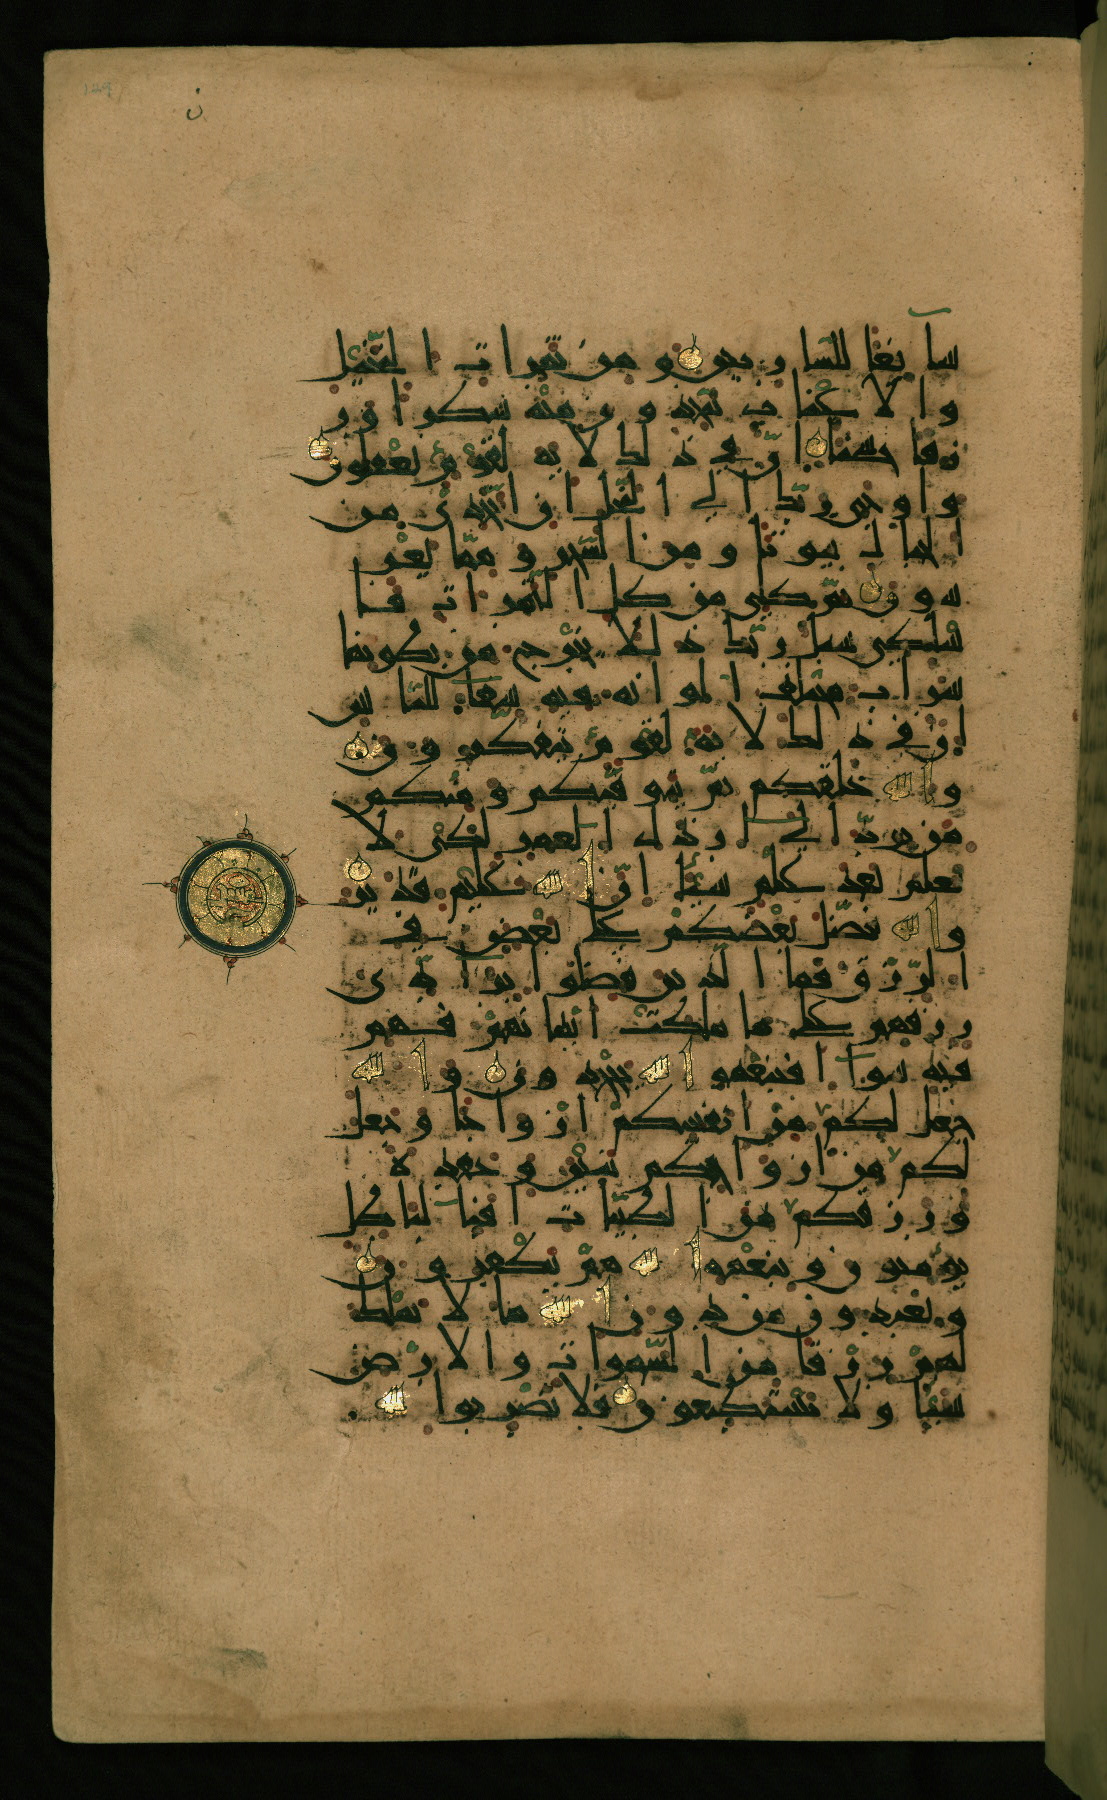 ن
سآئغا للشاربين ومن ثمرات النخيل
والاعناب تتخذون منه سكرا ور
زقا حسنا ان في ذلك لاية لقوم يعقلون
واوحى ربك الى النحل ان اتخذى من
الجبال بيوتا ومن الشجر ومما يعر
شون ثم كلى من كل الثمرات فا
سلكى سبل ربك ذللا يخرج من بطونها
شراب مختلف الوانه فيه شفآ للناس
ان في ذلك لاية لقوم يتفكرون
والله خلقكم ثم يتوفيكم ومنكم
من يرد الى ارذل العمر لكى لا
يعلم بعد علم شيئا ان الله عليم قدير
والله فضل بعضكم على بعض في
الرزق فما الذين فضلوا برآدى
رزقهم على ما ملكت ايمانهم فهم
فيه سوآ افبنعمة الله يجحدون والله
جعل لكم من انفسكم ازواجا وجعل
لكم من ازواجكم بنين وحفدة
ورزقكم من الطيبات افبالباطل
يؤمنون وبنعمة الله هم يكفرون
ويعبدون من دون الله ما لا يملك
لهم رزقا من السموات والارض
شيئا ولا يستطيعون فلا تضربوا لله